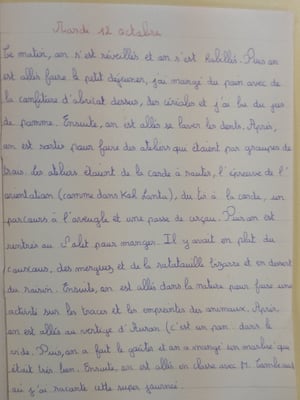 Mardi 12 octobre
Ce matin, on s'est réveillés et on s'est habillés. Puis on
est allés faire le petit déjeuner, j'ai mangé du pain avec de
la confiture d'abricot dessus, des céréales et j'ai bu du jus
de pomme. Ensuite, on est allés se laver les dents. Après,
on est sortis pour faire des ateliers qui étaient par groupes de
trois. Les ateliers étaient de la corde à sauter, l'épreuve de l'
orientation (comme dans Koh Lanta), du tir à la corde, un
parcours à l'aveugle et une passe de cerceau. Puis on est
rentrés au Salet pour manger. Il y avait en plat du
couscous, des merguez et de la ratatouille bizarre et en dessert
du raisin. Ensuite, on est allés dans la nature pour faire une
activité sur les traces et les empreintes des animaux. Après
on est allés au vertige d'Auron (c'est un pont dans le
vide. Puis, on a fait le goûter et on a mangé un marbré qui
était très bon. Ensuite, on est allés en classe avec M.
où j'ai raconté cette super journée.